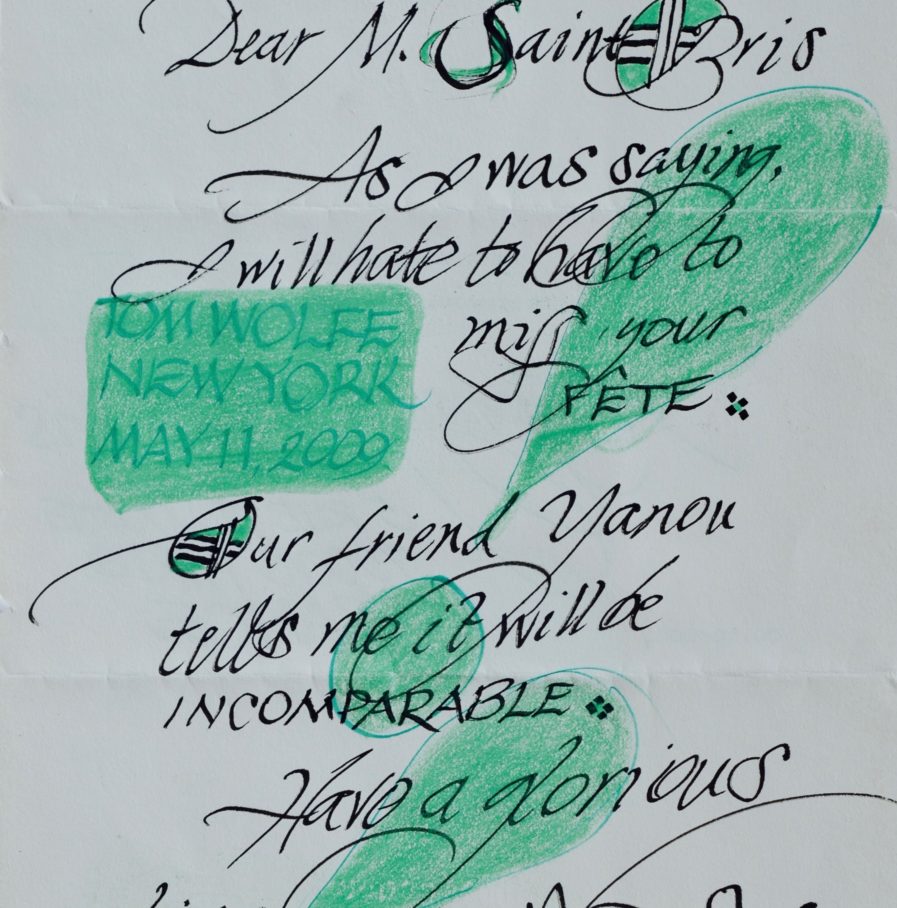 Dear M. Saint Bris
As I was saying,
I will hate to have to
miss your
FÊTE
TOM WOLFE
NEW YORK
MAY 11, 2009.
Our friend Yanou
tells me it will be
INCOMPARABLE
Have a glorious